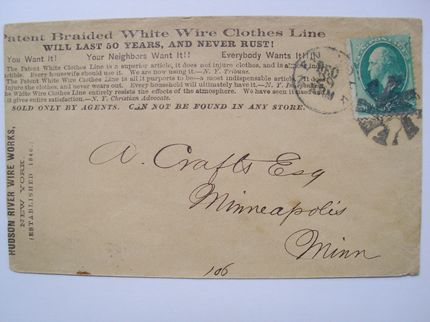 Patent Braided White Wire Clothes Line
WILL LAST 50 YEARS, AND NEVER RUST!
You Want It! Your Neighbors Want It!! Everybody Wants It!!
The Patent White Clothes Line is a superior article, it does not injure clothes, and is
Every housewife should use it. We are now using it.—N. Y. Tribune.
The Patent White Wire Clothes Line is all it purports to be—a most indispensable article
injure the clothes, and never wears out. Every household will ultimately have it.—N. Y.
White Wire Clothes Line entirely resists the effects of the atmosphere. We have seen it
it gives entire satisfaction.—N. Y. Christian Advocate.
SOLD ONLY BY AGENTS. CAN NOT BE FOUND IN ANY STORE.
HUDSON RIVER WIRE WORKS,
NEW YORK.
(ESTABLISHED 1846.)
DEC
A. Crafts Esq
Minneapolis
Minn
106